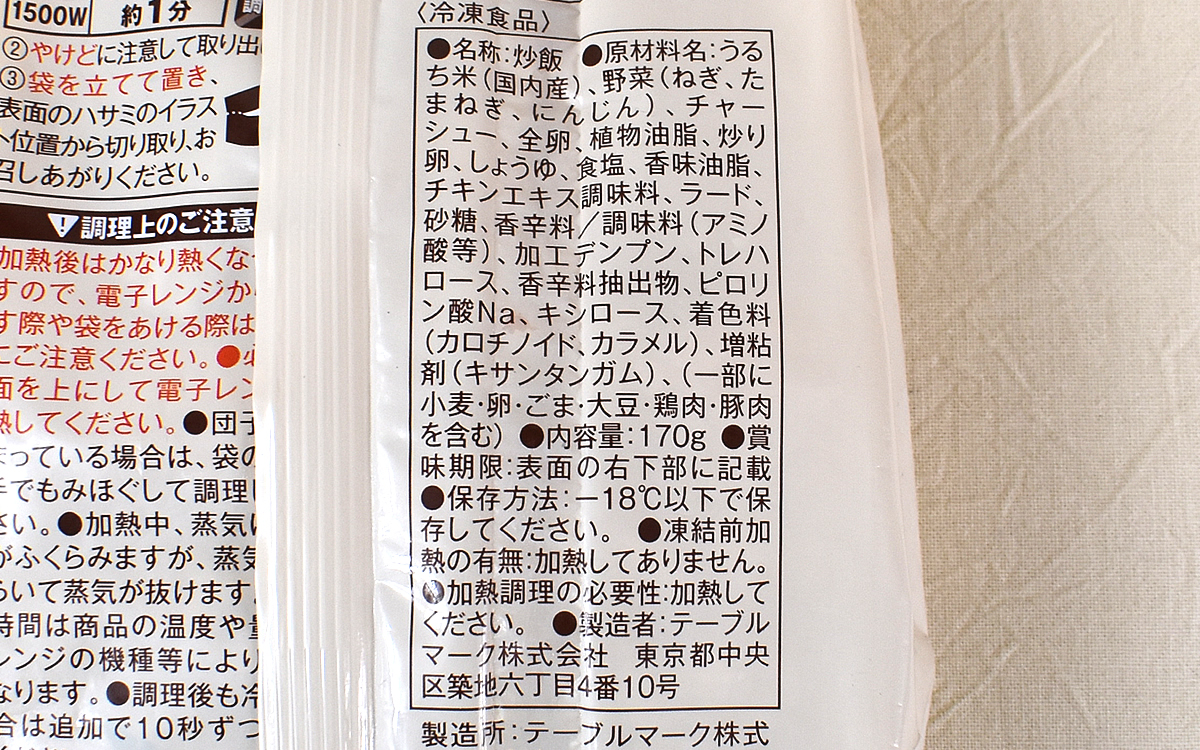 1500W 約1分
②やけどに注意して取り出
③袋を立てて置き、
表面のハサミのイラス
ト位置から切り取り、お
召しあがりください。
調理上のご注意
加熱後はかなり熱くな
すので、電子レンジか
す際や袋をあける際は
にご注意ください。●必
面を上にして電子レン
熱してください。●団子
まっている場合は、袋の
手でもみほぐして調理
さい。●加熱中、蒸気
がふくらみますが、蒸気
らいて蒸気が抜けます。
時間は商品の温度や量
レンジの機種等により
なります。●調理後も冷
合は追加で10秒ずつ
〈冷凍食品〉
●名称:炒飯 ●原材料名:うる
ち米(国内産)、野菜(ねぎ、た
まねぎ、にんじん)、チャー
シュー、全卵、植物油脂、炒り
卵、しょうゆ、食塩、香味油脂、
チキンエキス調味料、ラード、
砂糖、香辛料/調味料(アミノ
酸等)、加工デンプン、トレハ
ロース、香辛料抽出物、ピロリ
ン酸Na、キシロース、着色料
(カロチノイド、カラメル)、増粘
剤(キサンタンガム)、(一部に
小麦・卵・ごま・大豆・鶏肉・豚肉
を含む) ●内容量:170g ●賞
味期限:表面の右下部に記載
●保存方法:-18℃以下で保
存してください。 ●凍結前加
熱の有無:加熱してありません。
●加熱調理の必要性:加熱して
ください。 ●製造者:テーブル
マーク株式会社 東京都中央
区築地六丁目4番10号
製造所:テーブルマーク株式